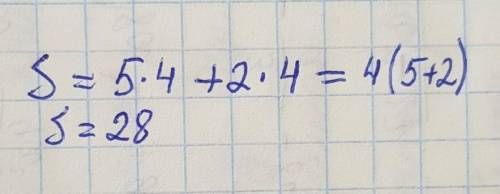 S = 5·4 + 2·4 = 4(5+2)
S = 28